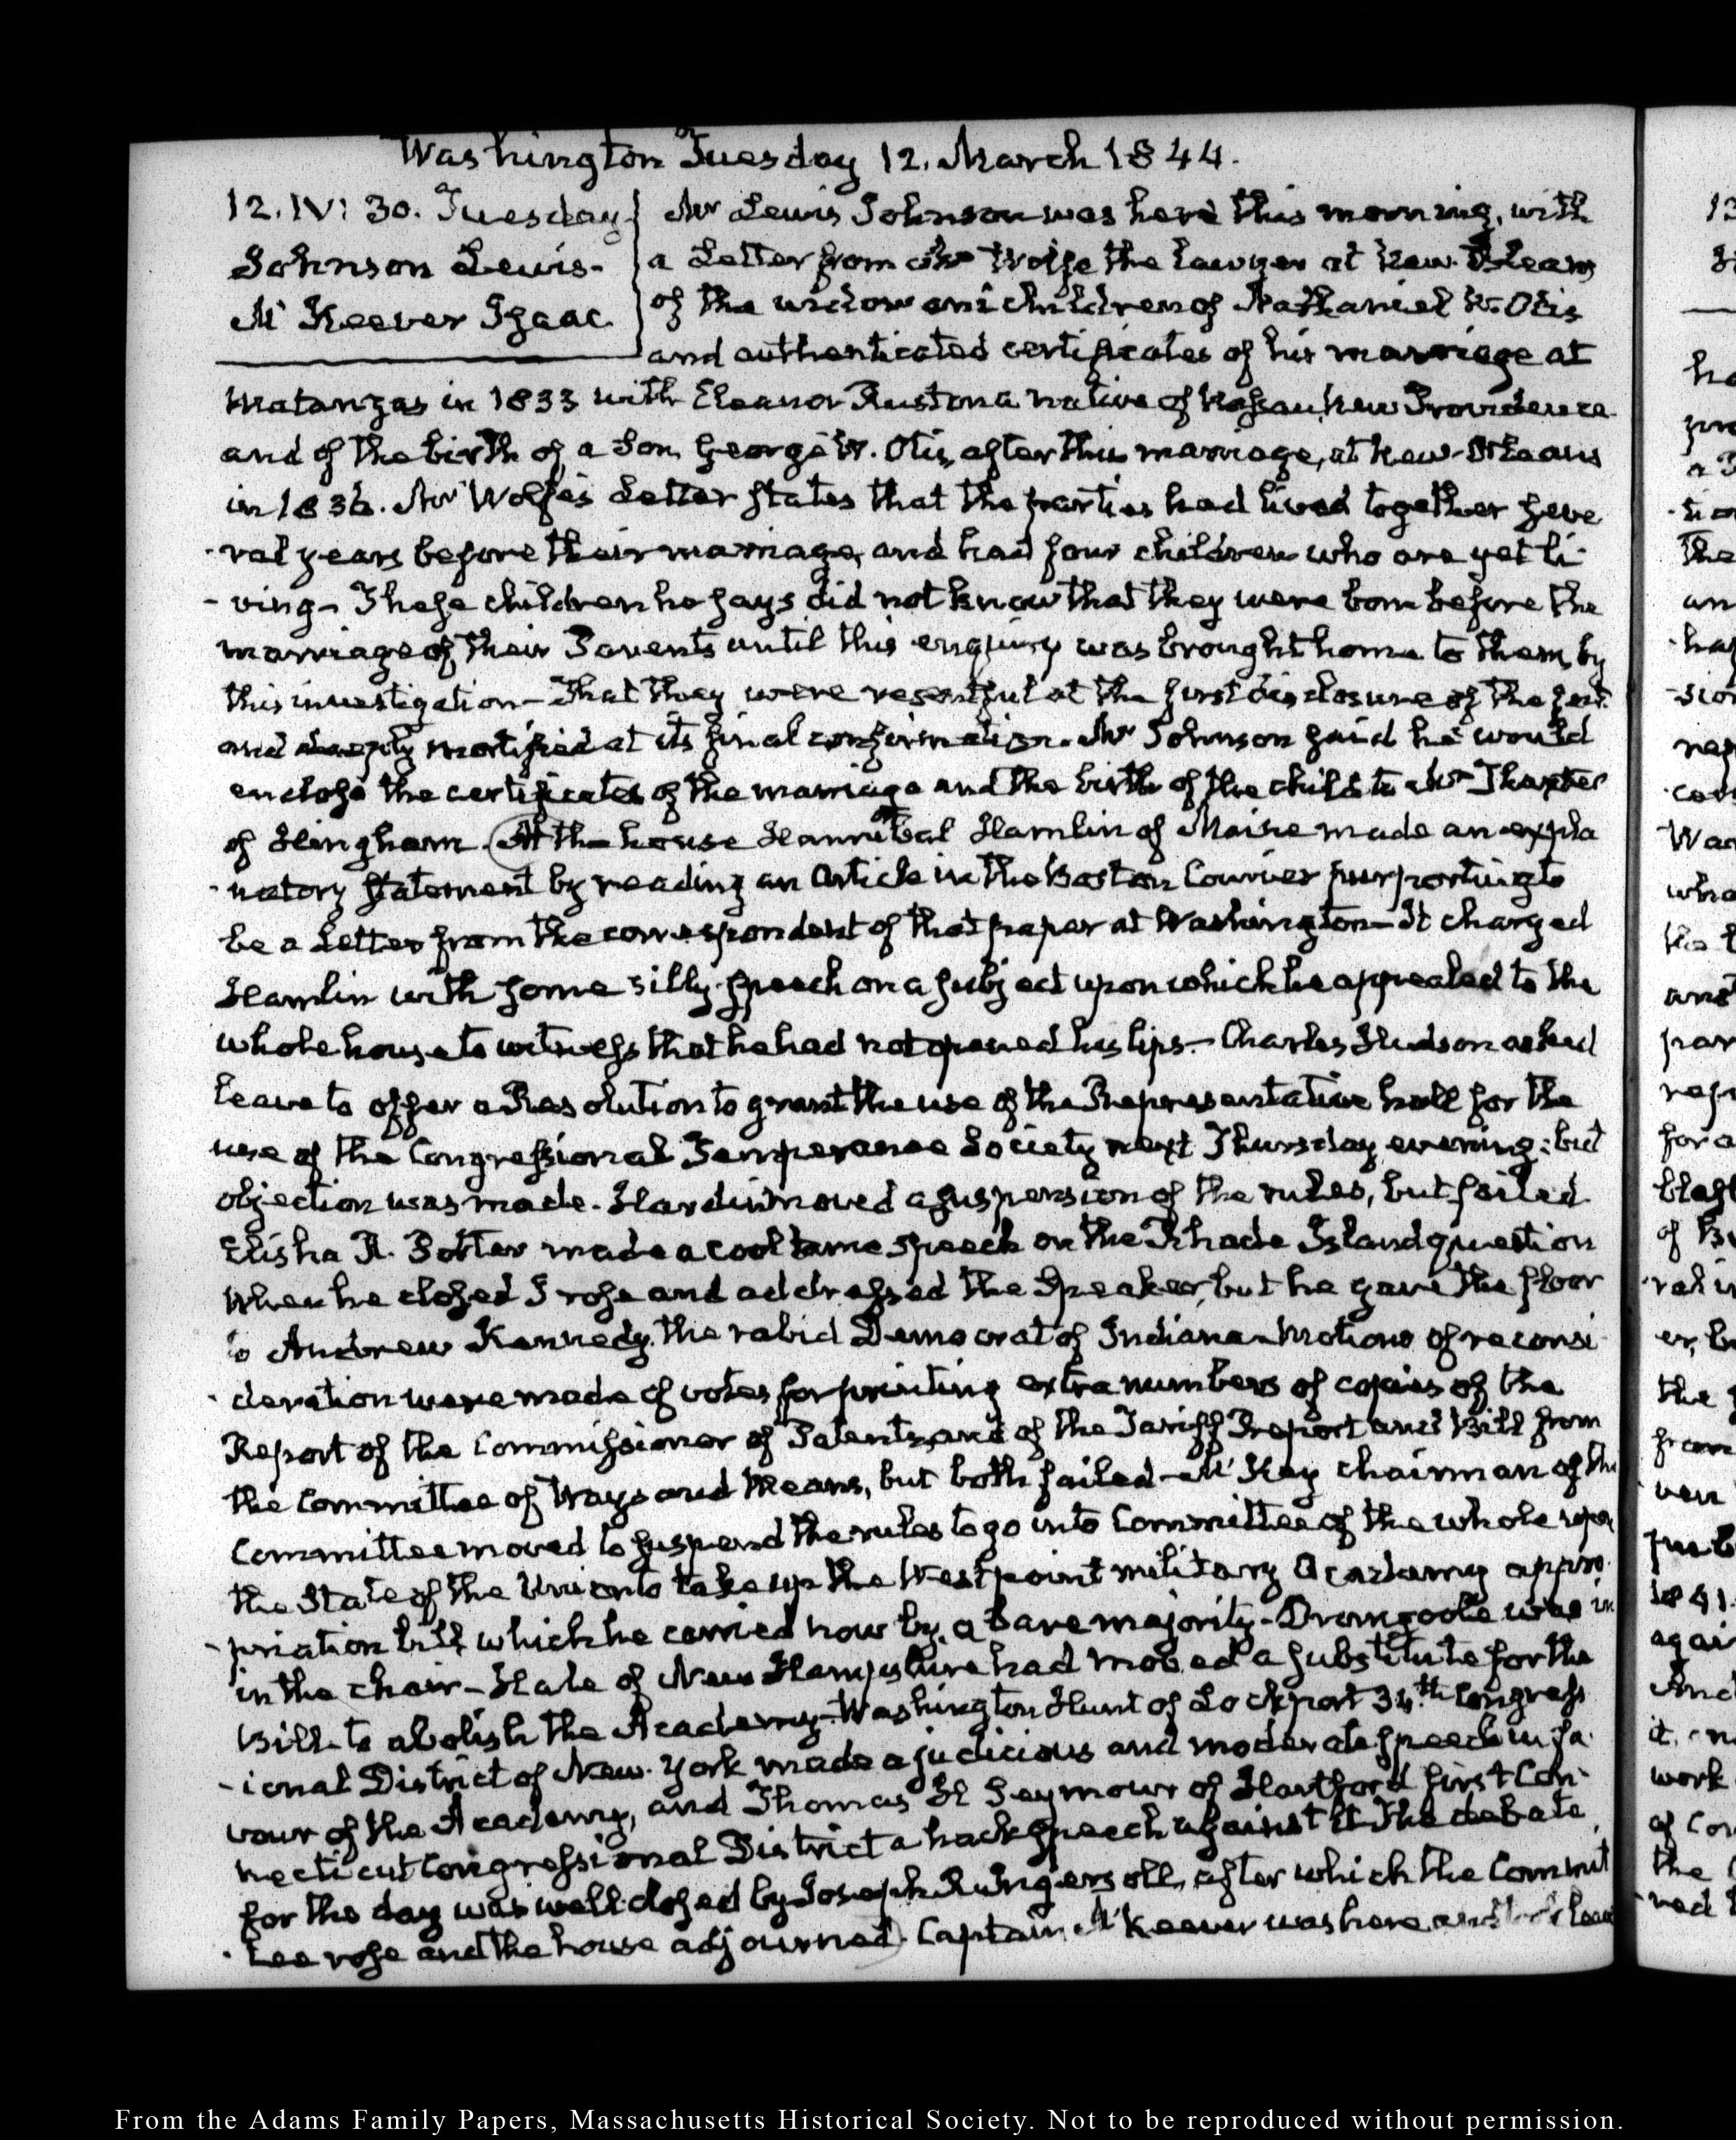 Washington Tuesday 12. March 1844.
12. IV: 30. Tuesday
Johnson Lewis.
Mc Keever Isaac
Mr Lewis Johnson was here this morning, with
a Letter from Mr Wolfe the Lawyer at New-Orleans
of the widow and children of Nathaniel W. Otis
and authenticated certificates of his marriage at
Matanzas in 1833 with Eleanor Ruston a native of Nassau, New Providence
and of the birth of a Son, George W. Otis, after this marriage, at New-Orleans
in 1836. Mr Wolfe's Letter states that the parties had lived together seve
-ral years before their marriage, and had four children who are yet li-
-ving- These children he says did not know that they were born before the
marriage of their Parents until this enquiry was brought home to them, by
this investigation- That they were resentful at the first disclosure of the fact
and deeply mortified at its final confirmation. Mr Johnson said he would
enclose the certificates of the marriage and the birth of the child to Mr Thaxter
of Hingham. At the house Hannibal Hamlin of Maine made an expla
-natory statement by reading an Article in the Boston Courier purporting to
be a Letter from the correspondent of that paper at Washington- It charged
Hamlin with some silly speech on a subject upon which he appealed to the
whole house to witness that he had not opened his lips.- Charles Hudson asked
leave to offer a Resolution to grant the use of the Representative hall for the
use of the Congressional Temperance Society next Thursday evening: but
objection was made. Hardin moved a suspension of the rules, but failed
Elisha R. Potter made a cool tame speech on the Rhode Island question
When he closed I rose and addressed the Speaker, but he gave the floor
to Andrew Kennedy, the rabid Democrat of Indiana- Motions of reconsi
-deration were made of votes for printing extra numbers of copies of the
Report of the Commissioner of Patents, and of the Tariff Report and Bill from
the Committee of Ways and Means, but both failed- Mc Kay chairman of the
Committee moved to suspend the rules to go into Committee of the whole upon
the State of the Union to take up the West point military Academy appro
-priation bill which he carried now by a bare majority- Dromgoole was in
in the chair- Hale of New Hampshire had moved a substitute for the
Bill- to abolish the Academy- Washington Hunt of Lockport 34th Congress
-ional District of New-York made a judicious and moderate speech in fa
vour of the Academy, and Thomas H Seymour of Hartford first Con-
necticut Congressional District a hack speech against it. The debate
for the day was well closed by Joseph R Ingersoll, after which the Commit
-tee rose and the house adjourned. Captain Mc Keever was here and took leave
From the Adams Family Papers, Massachusetts Historical Society. Not to be reproduced without permission.